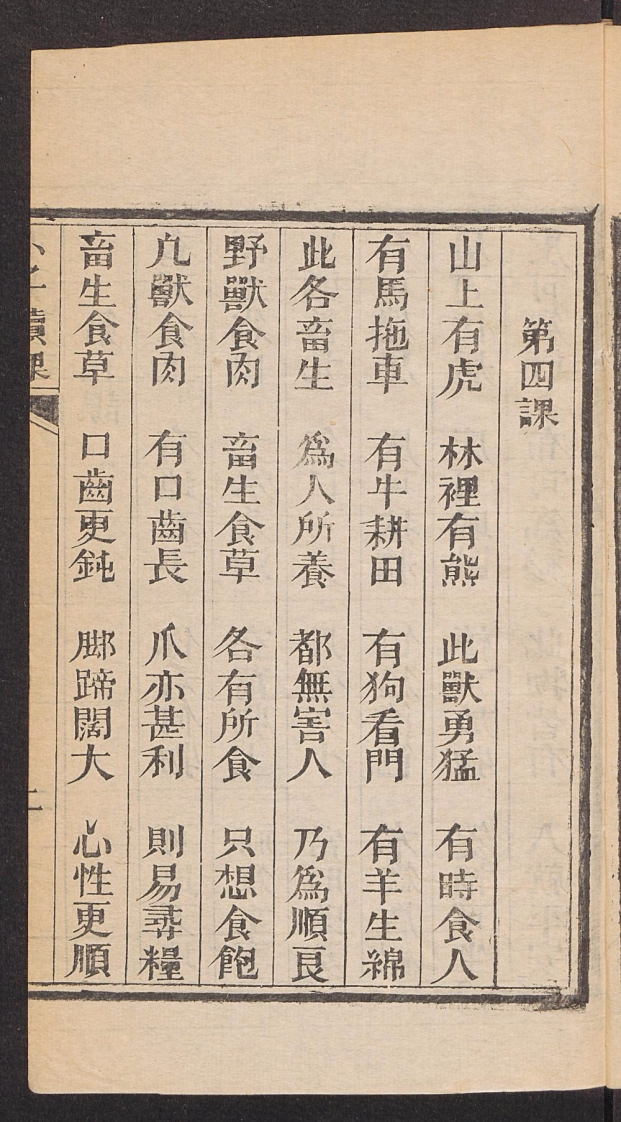 第四課
山上有虎 林裡有熊 此獸勇猛 有時食人
有馬拖車 有牛耕田 有狗看門 有羊生綿
此各畜生 爲人所養 都無害人 乃爲順良
野獸食肉 畜生食草 各有所食 只想食飽
凢獸食肉 有口齒長 爪亦甚利 則易尋糧
畜生食草 口齒更鈍 脚蹄闊大 心性更順
讀課
二